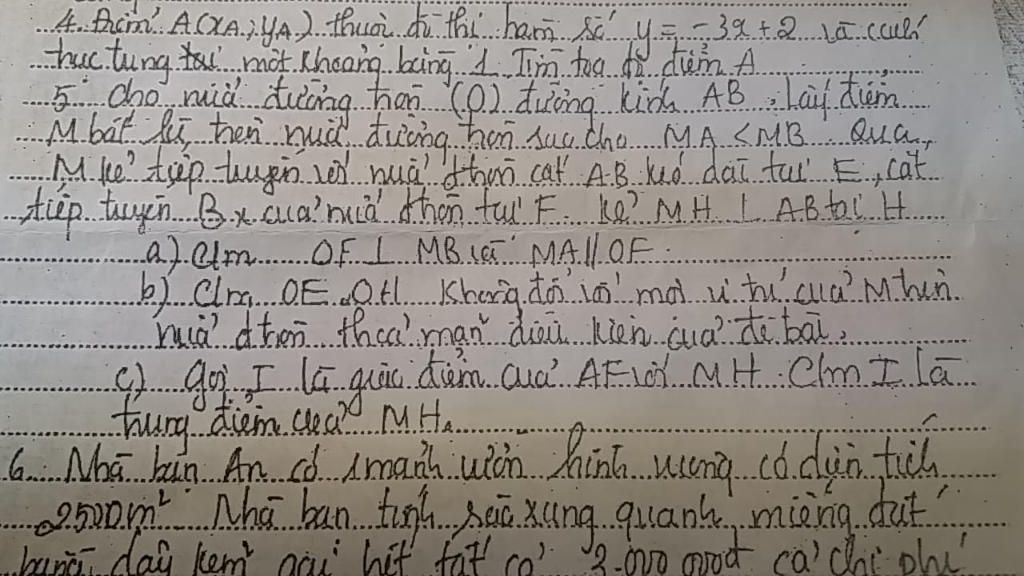 4. Điểm A(xA; yA) thuộc đồ thị hàm số y = -3x + 2 và cách
trục tung tại một khoảng bằng 1. Tìm tọa độ điểm A
5. Cho nửa đường tròn (O) đường kính AB, lấy điểm
M bất kì trên nửa đường tròn sao cho MA < MB. Qua
M kẻ tiếp tuyến với nửa đtròn cắt AB kéo dài tại E, cắt
tiếp tuyến Bx của nửa đtròn tại F. kẻ MH ⊥ AB tại H
a) Clm OF ⊥ MB và MA // OF
b) Clm OE.OH không đổi với mọi vị trí của M trên
nửa đtròn thỏa mãn điều kiện của đề bài.
c) Gọi I là giao điểm của AF với MH. Clm I là
trung điểm của MH.
6. Nhà bạn An có 1 mảnh vườn hình vuông có diện tích
2500m² Nhà bạn tính xung quanh miếng đất
dây kẽm gai hết tất cả 3.000 000đ cả chi phí